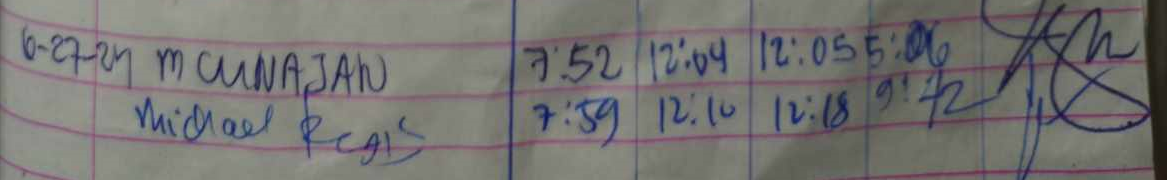 6-27-24 M CUNAJAN 7:52 12:04 12:05 5:06
Michael Regis 7:59 12:10 12:18 9:42